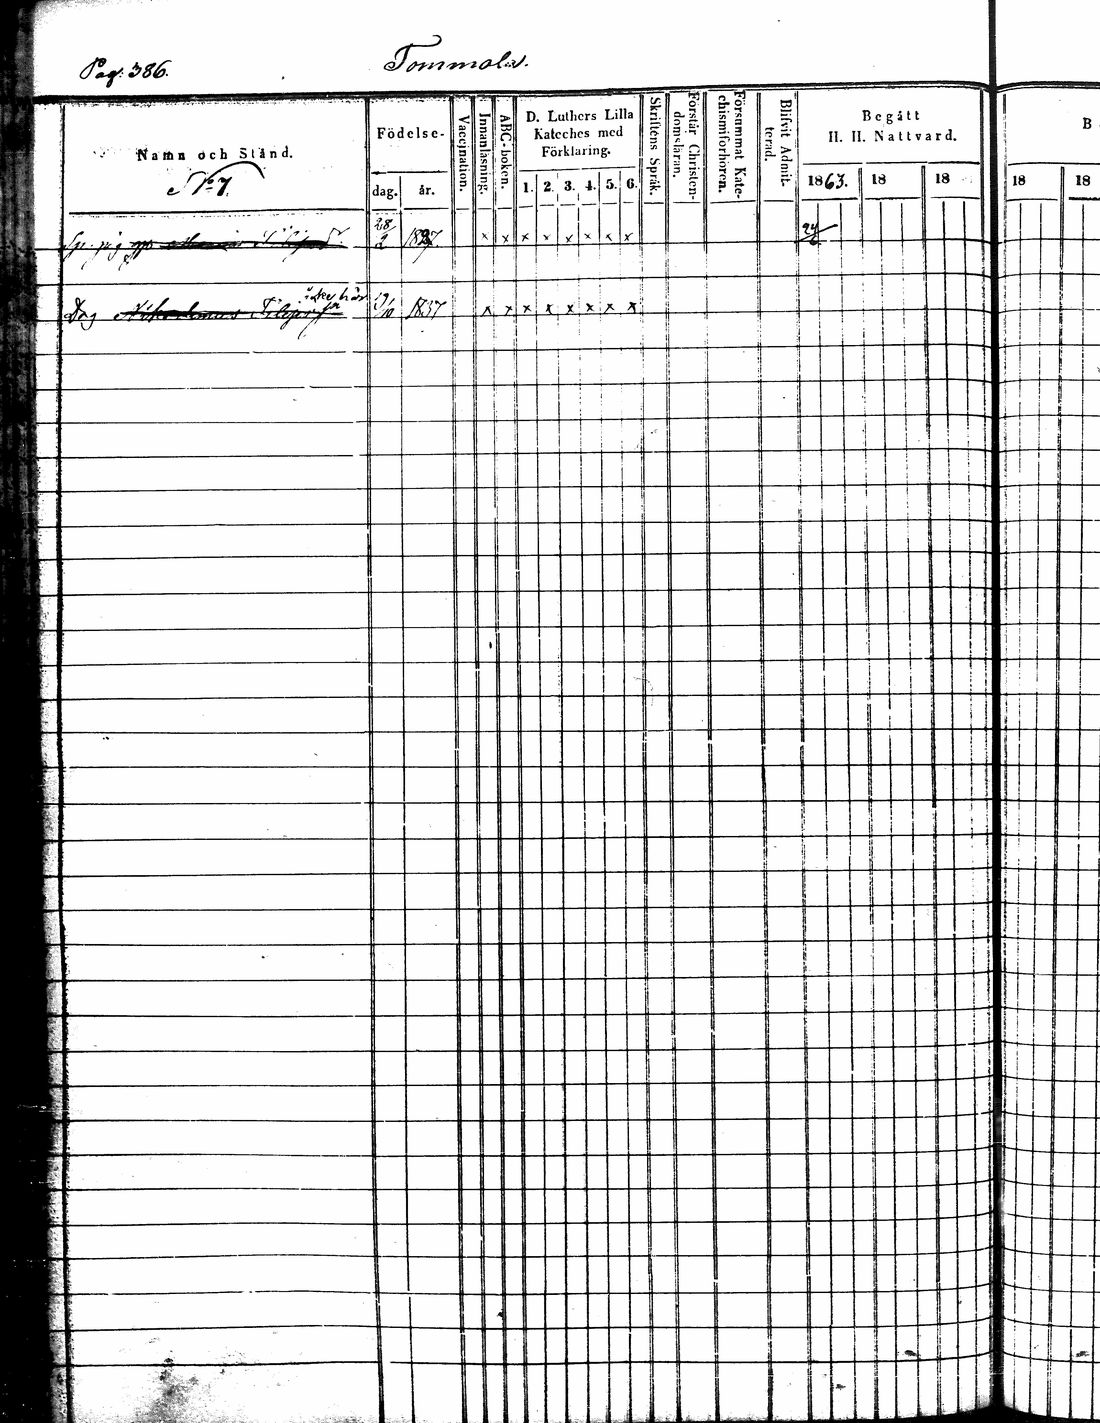 Pag. 386.
Tommola.
Namn och Stånd.
No 7.
Födelse-
dag.
år.
Vaccination.
Innanläsning.
ABC-boken.
D. Luthers Lilla
Kateches med
Förklaring.
1. 2. 3. 4. 5. 6.
Skriftens Språk.
Förstår Christen-
domsläran.
Försummat Kate-
chismiförhören.
Blifvit Admit-
terad.
Begått
H. H. Nattvard.
1863. 18 18
B
18 18
28/2 x x x x x x x x 24/6
Drg 19/10 1837 x x x x x x x x